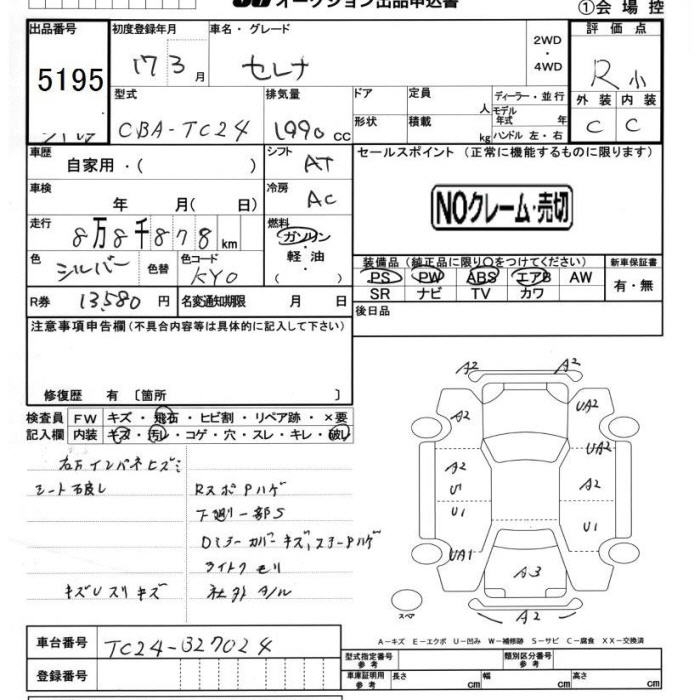 オークション出品申込書
①会場控
出品番号 初度登録年月 車名・グレード 2WD・4WD 評価点
5195 17 3月 セレナ R小
型式 排気量 ドア 定員 人 ディーラー・並行 外装 内装
モデル年式 年
CBA-TC24 1990cc 形状 積載 kg ハンドル 左・右 C C
車歴 自家用・( ) シフト AT セールスポイント (正常に機能するものに限ります)
車検 年 月( 日) 冷房 AC NOクレーム・売切
走行 8万8千878km 燃料 ガソリン・軽油・( )
装備品(純正品に限り○をつけてください) 新車保証書
色 シルバー 色替 色コード KY0 PS PW ABS エアB AW 有・無
SR ナビ TV カワ
R券 13,580円 名変通知期限 月 日 後日品
注意事項申告欄(不具合内容等は具体的に記入して下さい)
修復歴 有〔箇所 〕
検査員記入欄 FW キズ・飛石・ヒビ割・リペア跡・×要
内装 キズ・汚レ・コゲ・穴・スレ・キレ・破レ
右方インパネヒズミ
シート
RスポPハゲ
下廻り一部S
Dミラーカバーキズ、ステーPハゲ
ライトクモリ
キズUスリキズ 社外タル
A2
A2
A2 UA2
UA2
A2 A2
U1
U1 U1
UA1
A3
A2
スペア
A-キズ E-エクボ U-凹み W-補修跡 S-サビ C-腐食 XX-交換済
車台番号 TC24-327024
登録番号
型式指定番号 参考 類別区分番号 参考
車庫証明用 参考 長さ cm 幅 cm 高さ cm